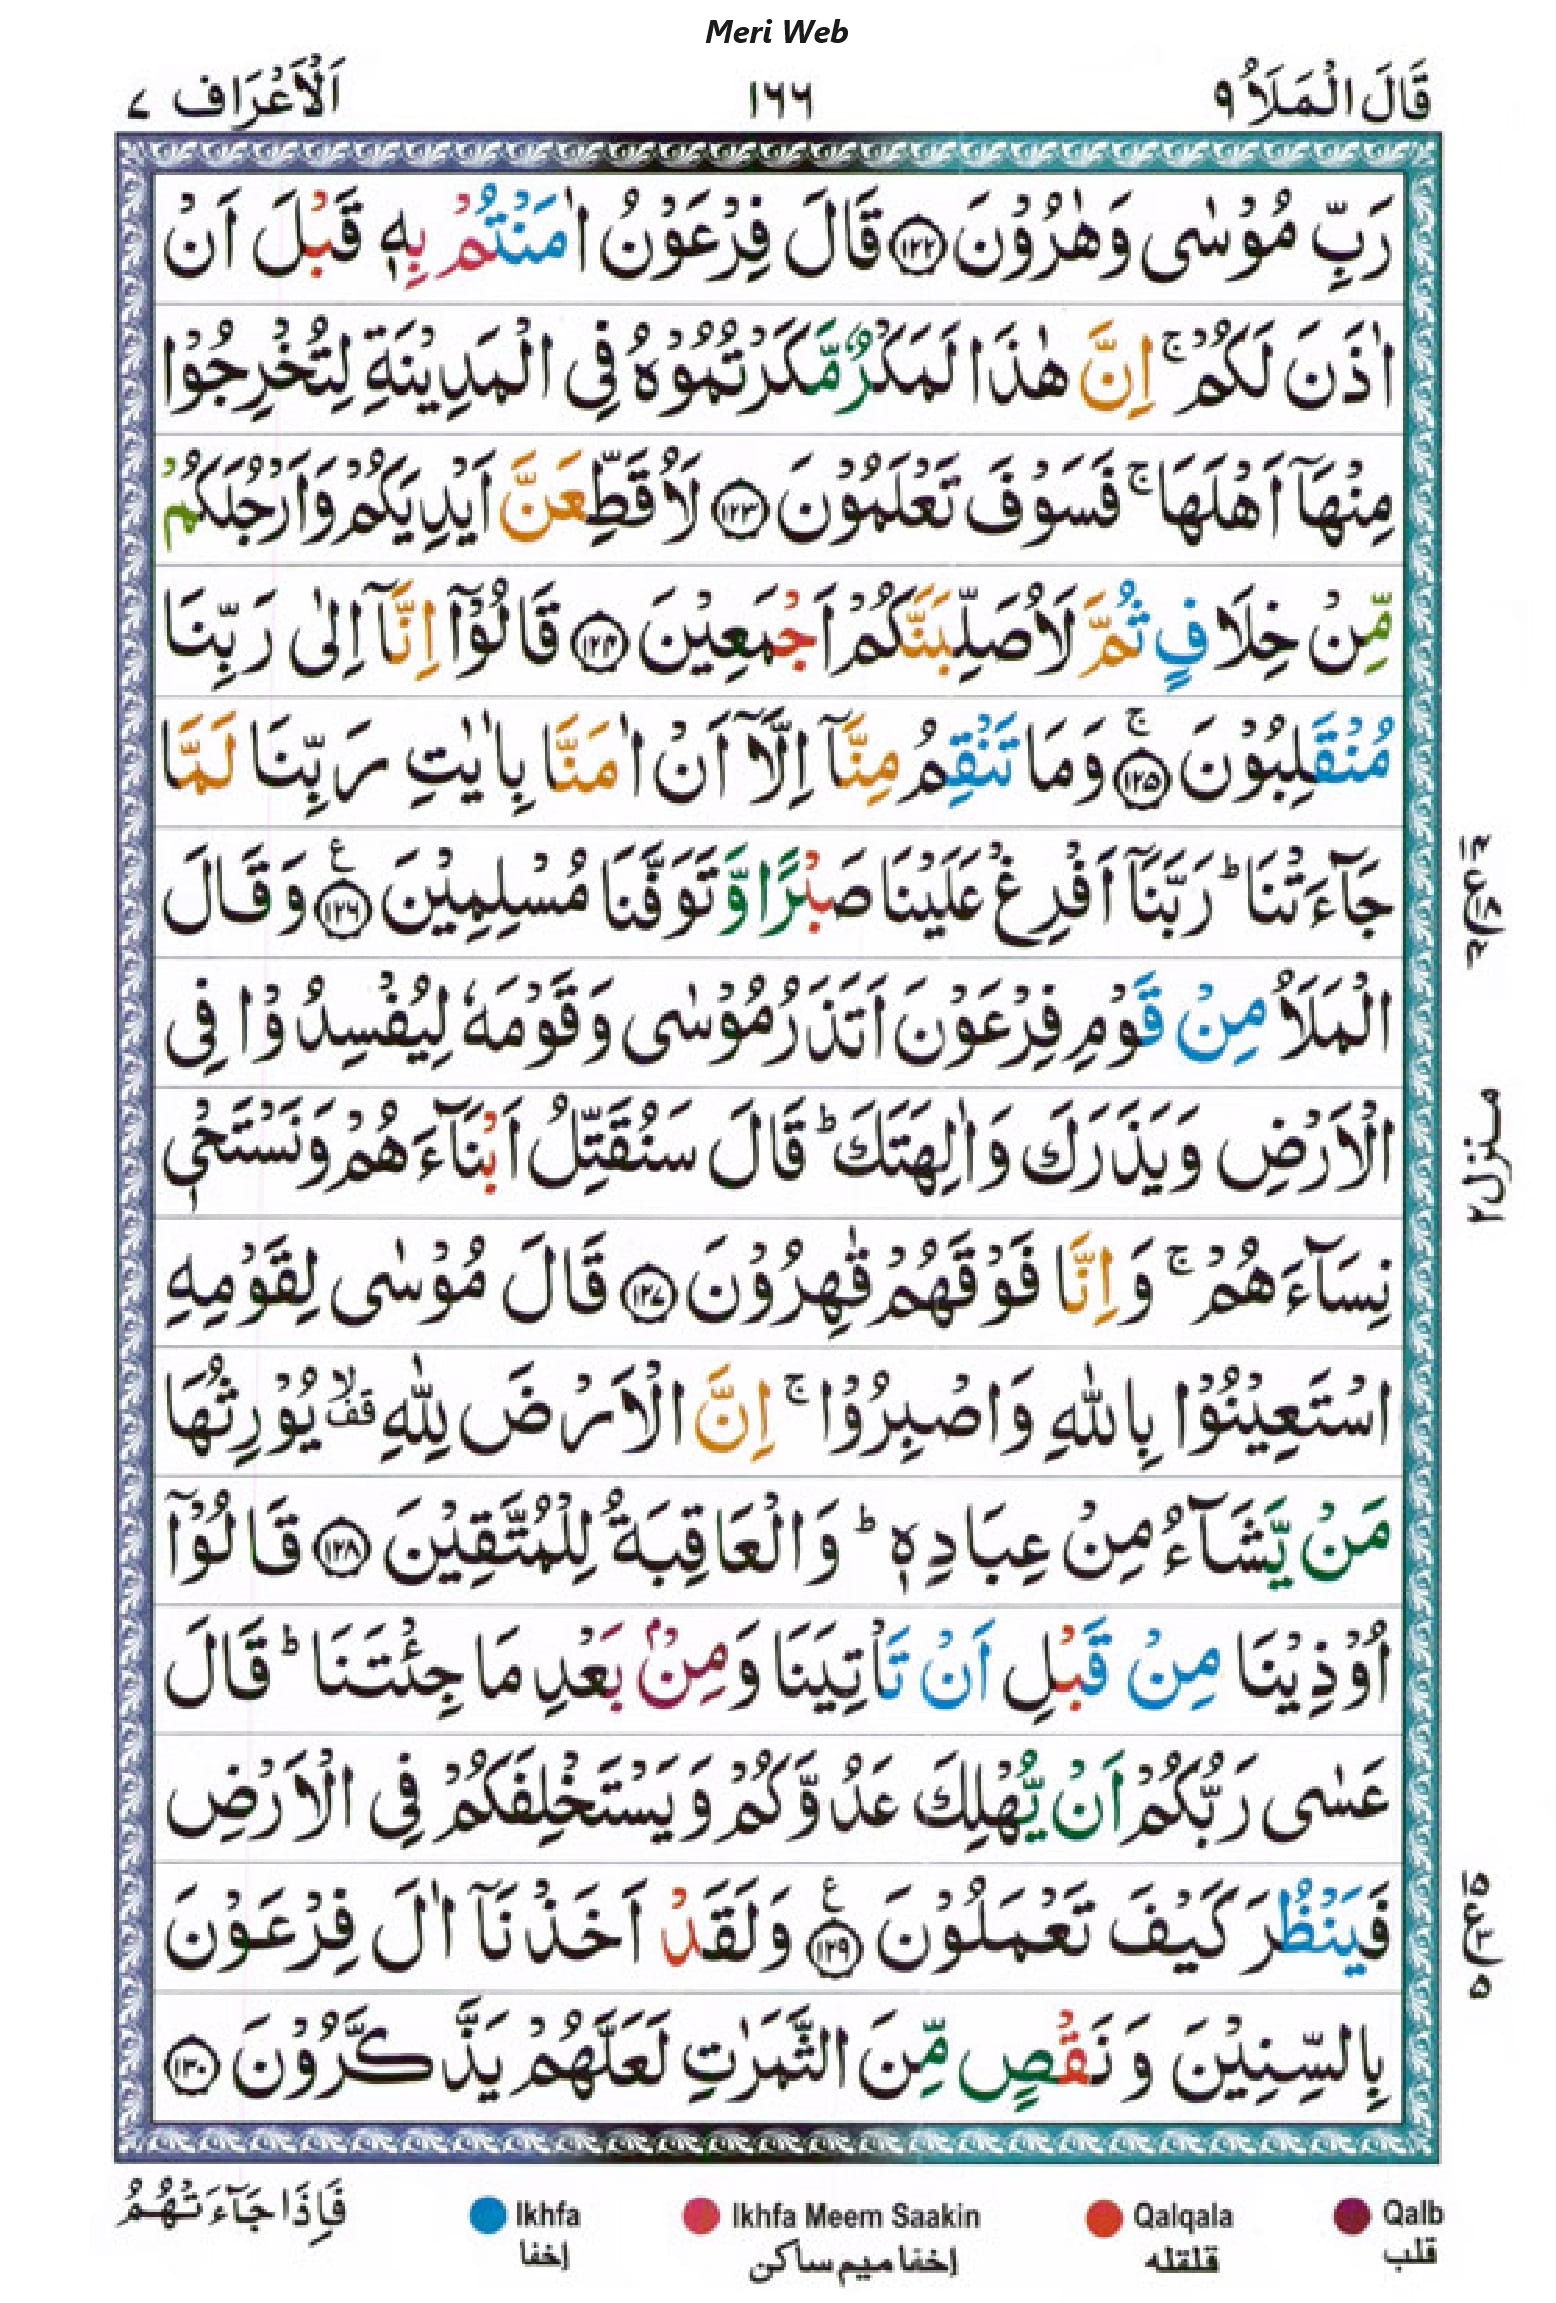 Meri Web
قَالَ الْمَلَاُ ٩
١٦٦
اَلْاَعْرَاف ٧
رَبِّ مُوْسٰى وَهٰرُوْنَ ﴿١٢٢﴾ قَالَ فِرْعَوْنُ اٰمَنْتُمْ بِهٖ قَبْلَ اَنْ
اٰذَنَ لَكُمْ ۚ اِنَّ هٰذَا لَمَكْرٌ مَّكَرْتُمُوْهُ فِى الْمَدِيْنَةِ لِتُخْرِجُوْا
مِنْهَآ اَهْلَهَا ۚ فَسَوْفَ تَعْلَمُوْنَ ﴿١٢٣﴾ لَاُقَطِّعَنَّ اَيْدِيَكُمْ وَاَرْجُلَكُمْ
مِّنْ خِلَافٍ ثُمَّ لَاُصَلِّبَنَّكُمْ اَجْمَعِيْنَ ﴿١٢٤﴾ قَالُوْٓا اِنَّآ اِلٰى رَبِّنَا
مُنْقَلِبُوْنَ ۚ﴿١٢٥﴾ وَمَا تَنْقِمُ مِنَّآ اِلَّآ اَنْ اٰمَنَّا بِاٰيٰتِ رَبِّنَا لَمَّا
جَآءَتْنَا ؕ رَبَّنَآ اَفْرِغْ عَلَيْنَا صَبْرًا وَّتَوَفَّنَا مُسْلِمِيْنَ ﴿١٢٦﴾ ع وَقَالَ
الْمَلَاُ مِنْ قَوْمِ فِرْعَوْنَ اَتَذَرُ مُوْسٰى وَقَوْمَهٗ لِيُفْسِدُوْا فِى
الْاَرْضِ وَيَذَرَكَ وَاٰلِهَتَكَ ؕ قَالَ سَنُقَتِّلُ اَبْنَآءَهُمْ وَنَسْتَحْىٖ
نِسَآءَهُمْ ۚ وَاِنَّا فَوْقَهُمْ قٰهِرُوْنَ ﴿١٢٧﴾ قَالَ مُوْسٰى لِقَوْمِهِ
اسْتَعِيْنُوْا بِاللّٰهِ وَاصْبِرُوْا ۚ اِنَّ الْاَرْضَ لِلّٰهِ قف لا يُوْرِثُهَا
مَنْ يَّشَآءُ مِنْ عِبَادِهٖ ؕ وَالْعَاقِبَةُ لِلْمُتَّقِيْنَ ﴿١٢٨﴾ قَالُوْٓا
اُوْذِيْنَا مِنْ قَبْلِ اَنْ تَاْتِيَنَا وَمِنْۢ بَعْدِ مَا جِئْتَنَا ؕ قَالَ
عَسٰى رَبُّكُمْ اَنْ يُّهْلِكَ عَدُوَّكُمْ وَيَسْتَخْلِفَكُمْ فِى الْاَرْضِ
فَيَنْظُرَ كَيْفَ تَعْمَلُوْنَ ﴿١٢٩﴾ ع وَلَقَدْ اَخَذْنَآ اٰلَ فِرْعَوْنَ
بِالسِّنِيْنَ وَنَقْصٍ مِّنَ الثَّمَرٰتِ لَعَلَّهُمْ يَذَّكَّرُوْنَ ﴿١٣٠﴾
منزل ٢
فَاِذَا جَآءَتْهُمُ
Ikhfa
اخفا
Ikhfa Meem Saakin
اخفا میم ساکن
Qalqala
قلقله
Qalb
قلب